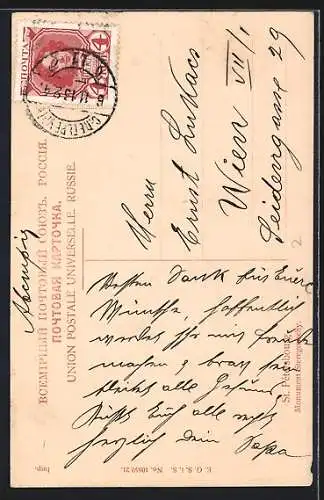 ВСЕМІРНЫЙ ПОЧТОВЫЙ СОЮЗЪ. РОССІЯ.
ПОЧТОВАЯ КАРТОЧКА.
UNION POSTALE UNIVERSELLE. RUSSIE.
ПОЧТА
4
4
Herrn
Ernst Lukacs
Wien VII/1
Seidengasse 29
Besten Dank für Eure
Wünsche, hoffentlich
werdet Ihr mir Freude
machen, & brav sein
bleibt alle Gesund,
Küsst Euch alle recht
herzlich Dein Papa
St. Pétersbourg.
2.
Imp. E. G. S. i. S. No. 10850/21.